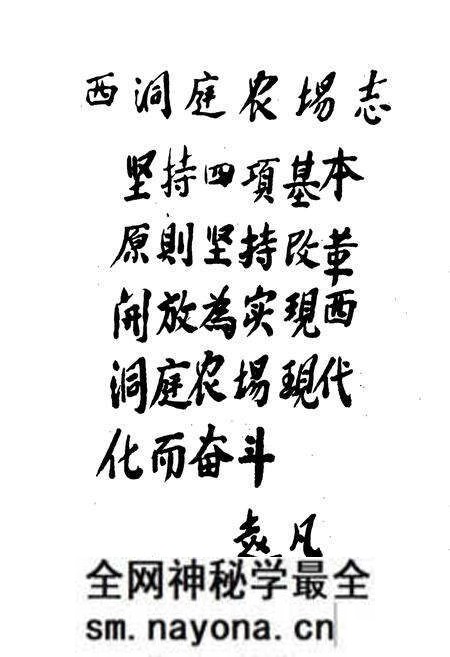 西洞庭农場志
坚持四項基本
原則坚持改革
開放為实現西
洞庭农場現代
化而奋斗
凡
全网神秘学最全
sm.nayona.cn